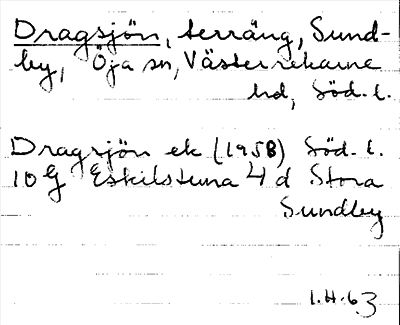 Dragsjön, terräng, Sund-
by, Öja sn, Västerrekarne
hd, Söd. l.
Dragsjön ek (1958) Söd. l.
10 G Eskilstuna 4 d Stora
Sundby
1.H.63